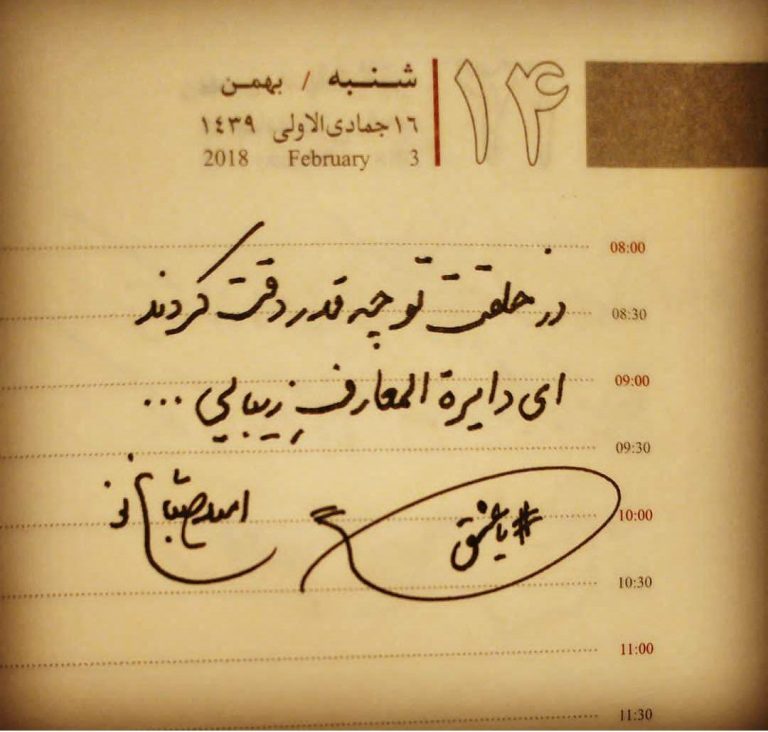 ۱۴
شنبه / بهمن
۱۶ جمادی‌الاولی ۱۴۳۹
3 February 2018
08:00
در خلقت تو چه قدر دقت کردند
08:30
09:00
ای دایرة المعارفِ زیبایی ...
09:30
امید صباغ نو
10:00
#یاعشق
10:30
11:00
11:30